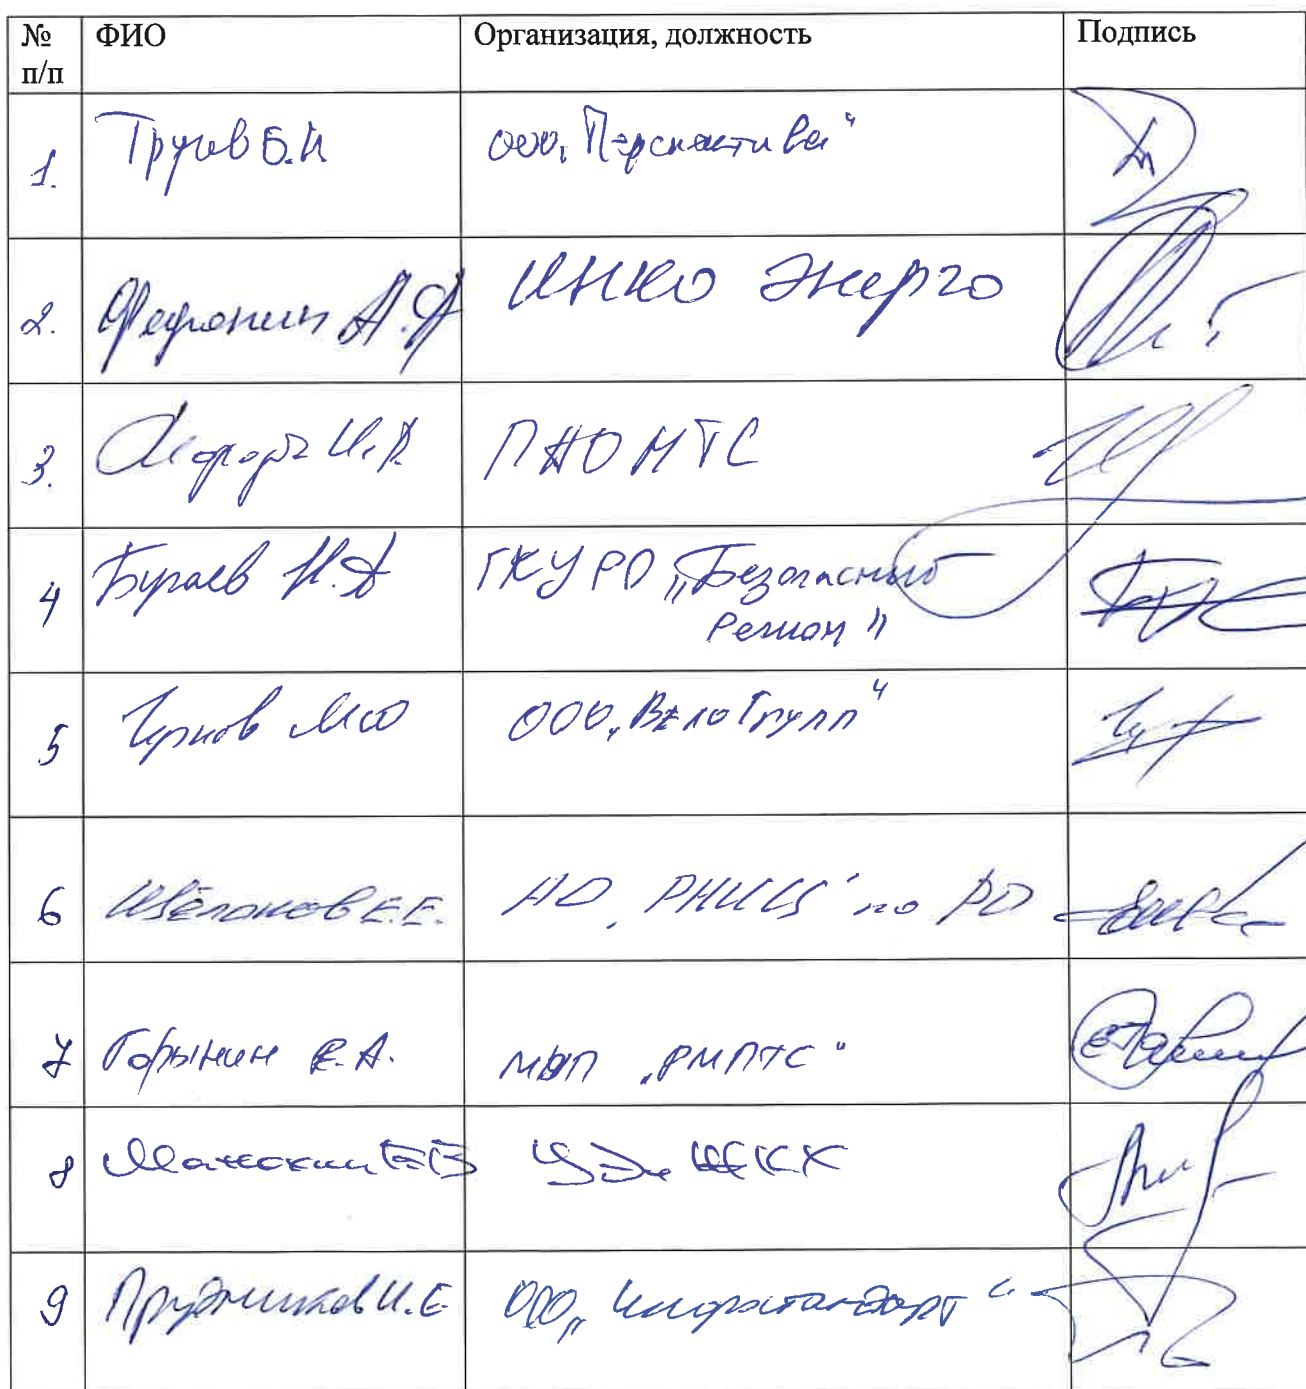 № п/п ФИО Организация, должность Подпись
1. Трунов Б.И ООО "Перспектива"
2. Федронин А.А ИНКО Энерго
3. И.В. ПАО МТС
4 Бураев И.А ГКУ РО "Безопасный
Регион"
5 Чернов М.Ю ООО "ВелоГрупп"
6 Е.Е. АО "РНИЦ" по РО
7 Горынин Е.А. МУП "РМПТС"
8 Манский Е В УЭ и ЖКХ
9 Прудников И.Е ООО "Инфостандарт"